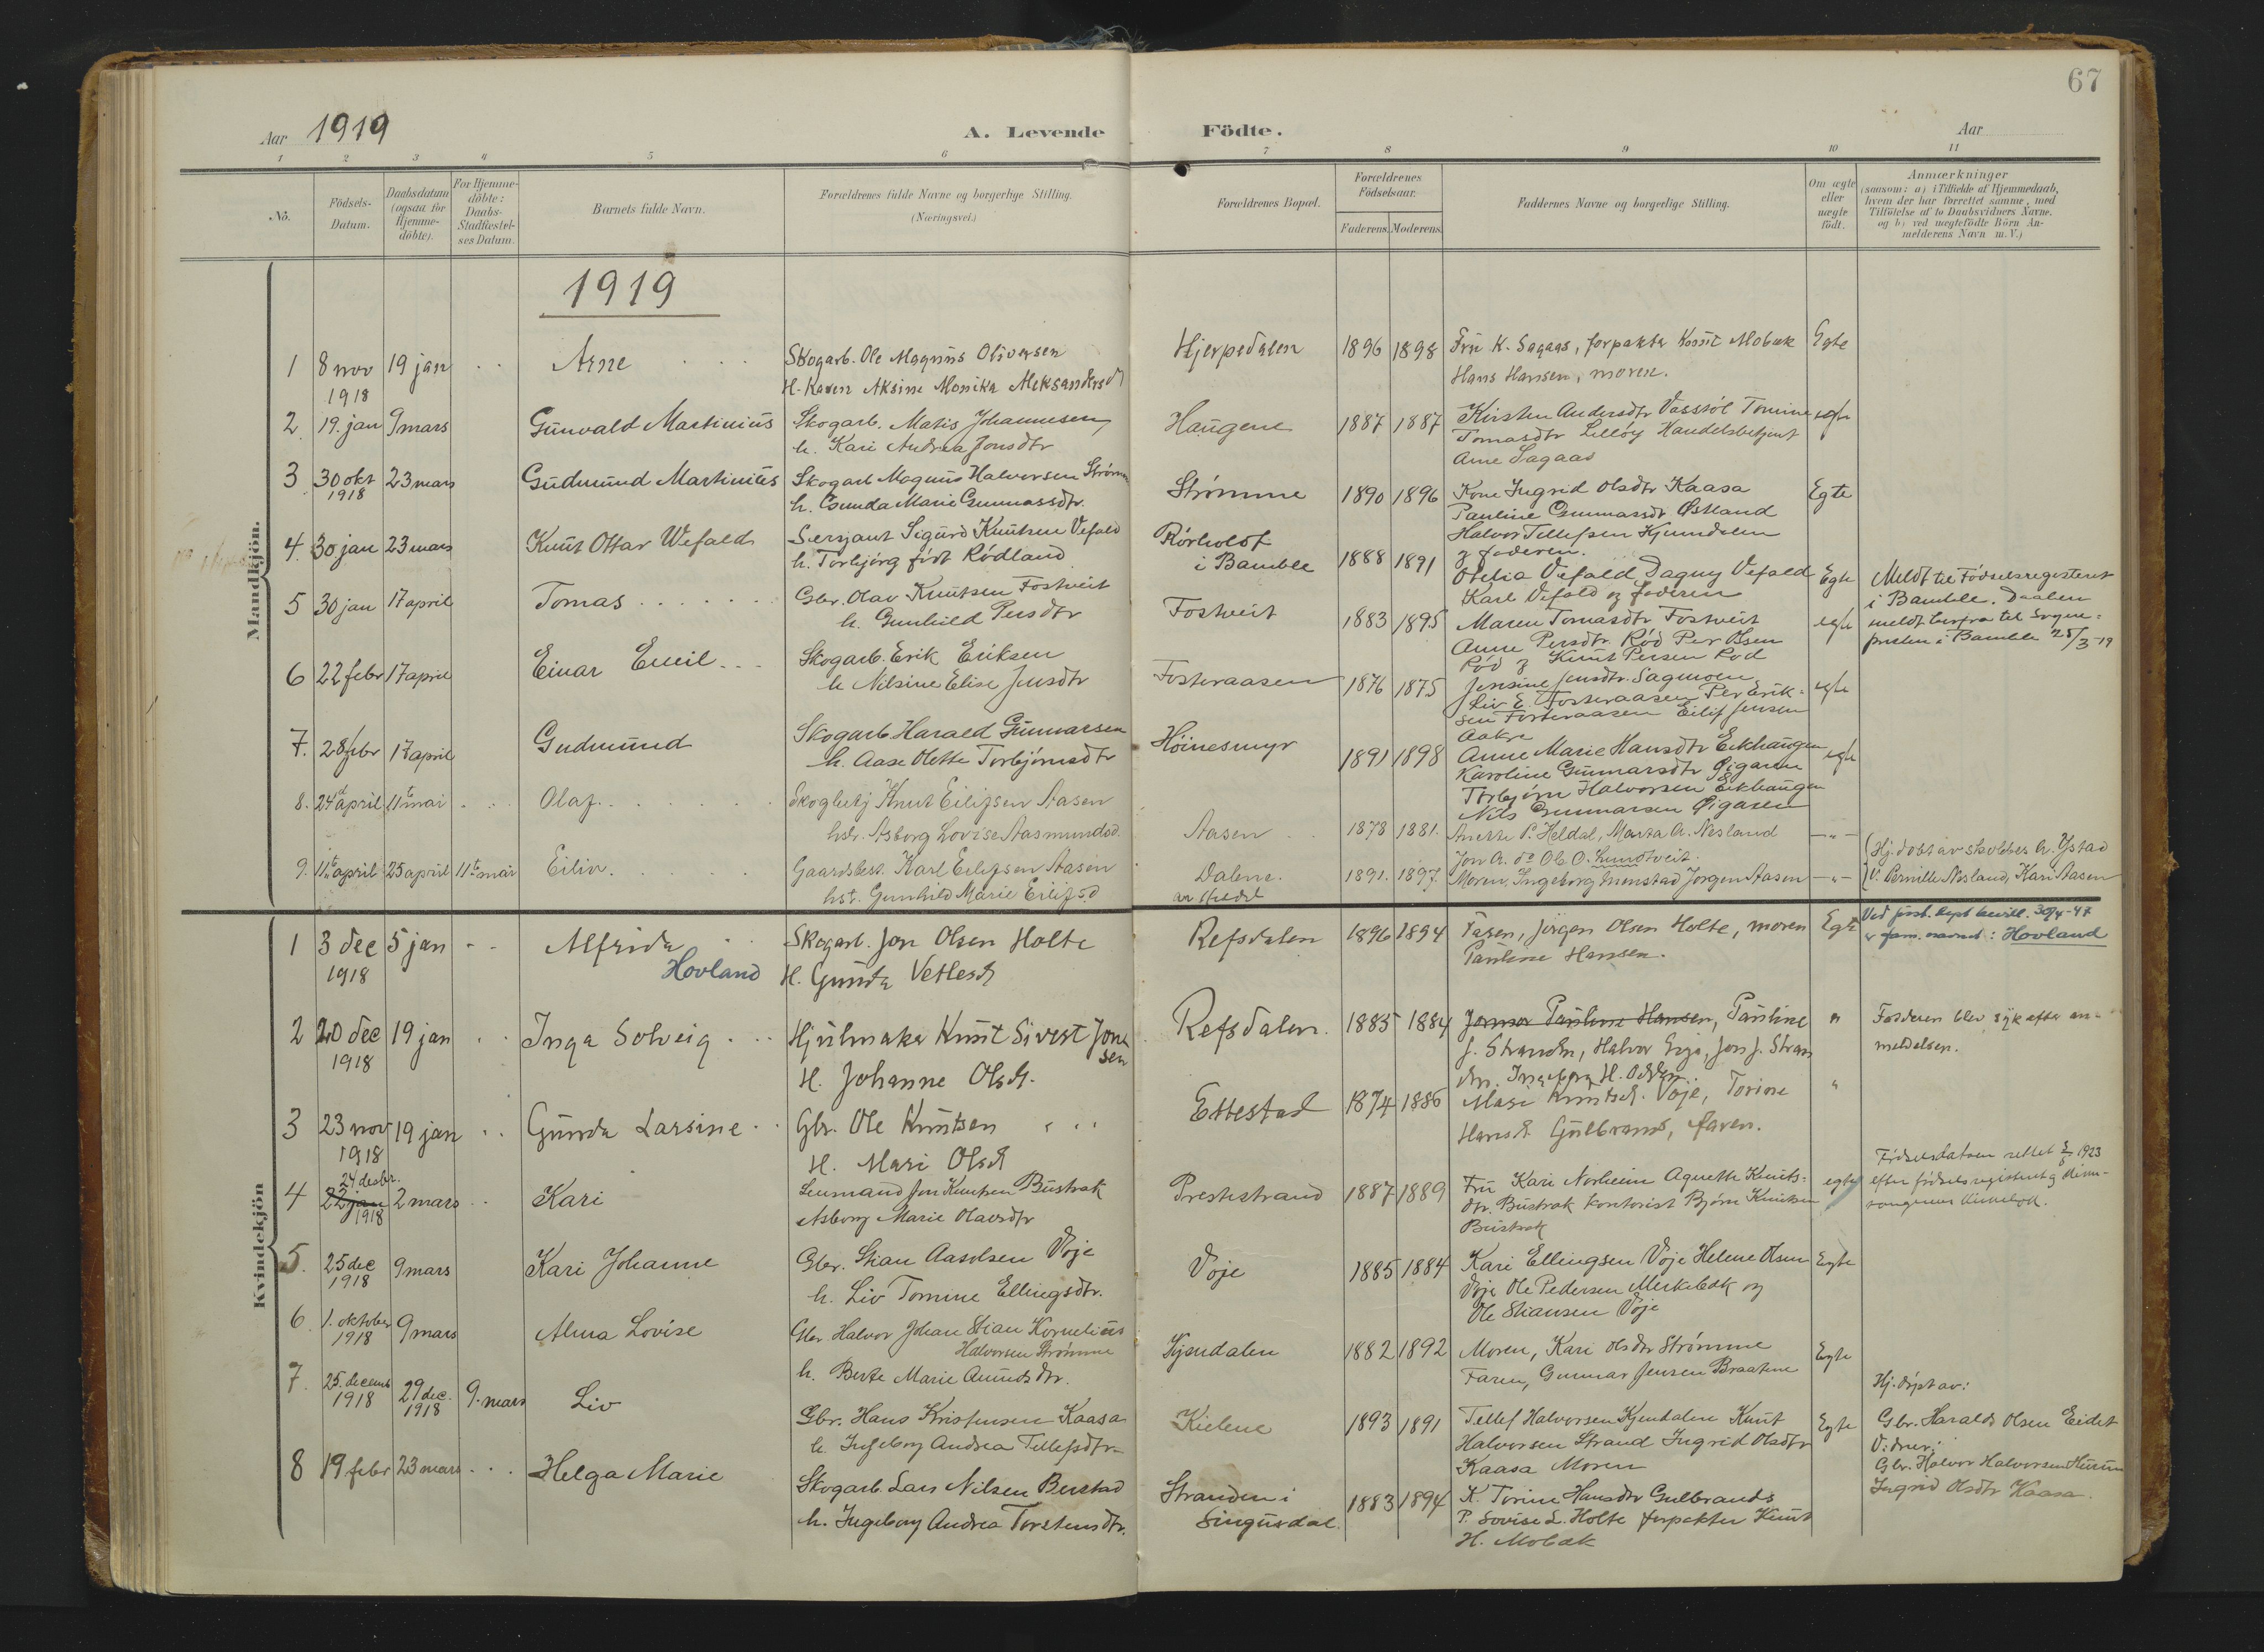 67
Aar 1919
A. Levende Födte.
Aar
1 2 3 4 5 6 7 8 9 10 11
No.
Födsels-Datum.
Daabsdatum (ogsaa for Hjemme-döbte).
For Hjemme-döbte: Daabs-Stadfæstel-ses Datum.
Barnets fulde Navn.
Forældrenes fulde Navne og borgerlige Stilling.
(Næringsvei.)
Forældrenes Bopæl.
Forældrenes Födselsaar.
Faderens. Moderens.
Faddernes Navne og borgerlige Stilling.
Om ægte eller uægte födt.
Anmærkninger
(saasom: a) i Tilfælde af Hjemmedaab,
hvem der har forrettet samme, med
Tilföielse af to Daabsvidners Navne.
og b) ved uægtefödte Börn An-
melderens Navn m. V.)
1919
Mandkjön.
1 8 nov 1918 19 jan Arne
Skogarb. Ole Magnus Oliversen
H. Karen Aksine Monika Aleksandersd
Hjerpedalen 1896 1898
Fru K. Sagaas, forpakter Knut Mobæk
Hans Hansen, moren.
Egte
2. 19. jan 9 mars Gunvald Martinius
Skogarb. Matis Johannesen
h. Kari Andrea Jonsdtr
Haugene 1887 1887
Kirsten Andersdtr Vasstöl Tomine
Tomasdtr Lilley Handelsbetjent
Arne Sagaas
egte
3 30 okt 1918 23 mars Gudmund Martinius
Skogarb Magnus Halvorsen Strømm
h. Gunda Marie Gunnarsdtr.
Strömme 1890 1896
Kone Ingrid Olsdtr Kaasa
Pauline Gunnarsdt Østland
Halvor Tellefsen Kjendalen
og faderen.
Egte
4. 30 jan 23 mars Knut Ottar Wefald
Sersjant Sigurd Knutsen Vefald
h. Torbjörg födt Rödland
Rörholt
i Bamble 1888 1891
Otelia Vefald Dagny Vefald
Karl Vefald og faderen
Egte
Meldt til Födselsregisteret
i Bamble. Daaben
meldt herfra til Sogne-
presten i Bamble 25/3-19
5 30 jan 17 april Tomas
Gbr. Olav Knutsen Fostveit
h. Gunhild Persdtr
Fostveit 1883 1895
Maren Tomasdtr Fostveit
Anne Persdtr Röd Per Olsen
Röd og Knut Persen Röd
egte
6 22 febr 17 april Einar Emil
Skogarb. Erik Eriksen
h Nilsine Elise Jensdtr
Fosteraasen 1876 1875
Jensine Jensdtr. Sagmoen
Liv E. Fosteraasen Per Erik-
sen Fosteraasen Eilif Jensen
Aakre
egte
7. 28 febr 17 april Gudmund
Skogarb. Harald Gunnarsen
h. Aase Olette Torbjörnsdtr
Höinesmyr 1891 1898
Anne Marie Hansdtr Eekhaugen
Karoline Gunnarsdtr Øigaren
Torbjörn Halvorsen Eekhaugen
Nils Gunnarsen Øigaren
egte
8. 24d april 11te mai Olaf.
Skogbetj Knut Eilifsen Aasen
hstr. Asborg Lovise Aasmundsd.
Aasen 1878 1881.
Anette P. Heldal, Marta A. Nesland
Jon A. ds Ole O. Lundtveit.
-"-
9. 11te april 25 april 11te mai Eiliv.
Gaardsbest. Karl Eilifsen Aasen
hst. Gunhild Marie Eilifsd
Dalene. 1891. 1897.
Moren, Ingeborg Grenstad Jorgen Aasen
-"-
Hj. döbt av skolebest A. Ystad
V. Pernille Nesland, Kari Aasen
Kvindekjön
1 3 dec 1918 5 jan Alfrida
Hovland
Skogarb. Jon Olsen Holte
H. Gunda Vetlesd
Refsdalen 1896 1894
Faren, Jörgen Olsen Holte, moren
Pauline Hansen.
Egte
Ved just. dept bevill. 30/4-47
er fam. navnet: Hovland
2 20 dec 1918 19 jan Inga Solveig
Hjulmaker Knut Sivert Jon
sen
H. Johanne Olsd.
Refsdalen. 1885 1884
Pauline Hansen, Pauline
J. Stranden, Halvor Voje, Jon J. Stran
den. Ingeborg H.
"
Faderen blev syk efter an-
meldelsen.
3 23 nov 1918 19 jan Gunda Larsine
Gbr. Ole Knutsen
H. Mari Olsd
Ettestad 1874 1886
Mari Knutsd. Voje, Torine
Hansd. Gulbrands, faren.
"
4 24 desbr. 22 jan 1918 2 mars Kari
Lensmand Jon Knutsen Bustrak
Asborg Marie Olavsdtr
Prestestrand 1887 1889
Fru Kari Norheim Agnethe Knuts-
dtr. Bustrak kontorist Björn Knutsen
Bustrak
egte
Födselsdatoen rettet 1923
efter födselsregisteret og
kirkebok.
5. 25 dec 1918 9 mars Kari Johanne
Gbr. Stian Aasolsen Voje
h. Liv Tomine Ellingsdtr.
Voje 1885 1884
Kari Ellingsen Voje Helene Olsen
Voje Ole Pedersen Merkebæk og
Ole Stiansen Voje
Egte
6. 1. oktober 1918 9 mars Alma Lovise
Gbr. Halvor Johan Stian Kornelius
Halvorsen Strömme
h. Berte Marie Amundsdtr.
Kjendalen 1882 1892
Moren, Kari Olsdtr Strömme
Faren, Gunnar Jensen Braatene
Egte
7. 25. decemb 1918 29 dec. 1918 9. mars Liv
Gbr. Hans Kristensen Kaasa
h. Ingeborg Andrea Tellefsdtr
Kielene 1893 1891
Tellef Halvorsen Kjendalen Knut
Halvorsen Strand Ingrid Olsdtr
Kaasa Moren
Egte
Hj. döpt av:
Gbr. Harald Olsen Eidet
Vidner:
Gbr. Halvor Halvorsen
Ingrid Olsdtr Kaasa.
8 19 febr 23 mars Helga Marie
Skogarb. Lars Nilsen Berstad
h. Ingeborg Andrea Torstensdtr.
Stranden i
Singusdal. 1883 1894
K. Torine Hansdtr Gulbrands
P. Lovise L. Holte forpakter Knut
H. Mobæk